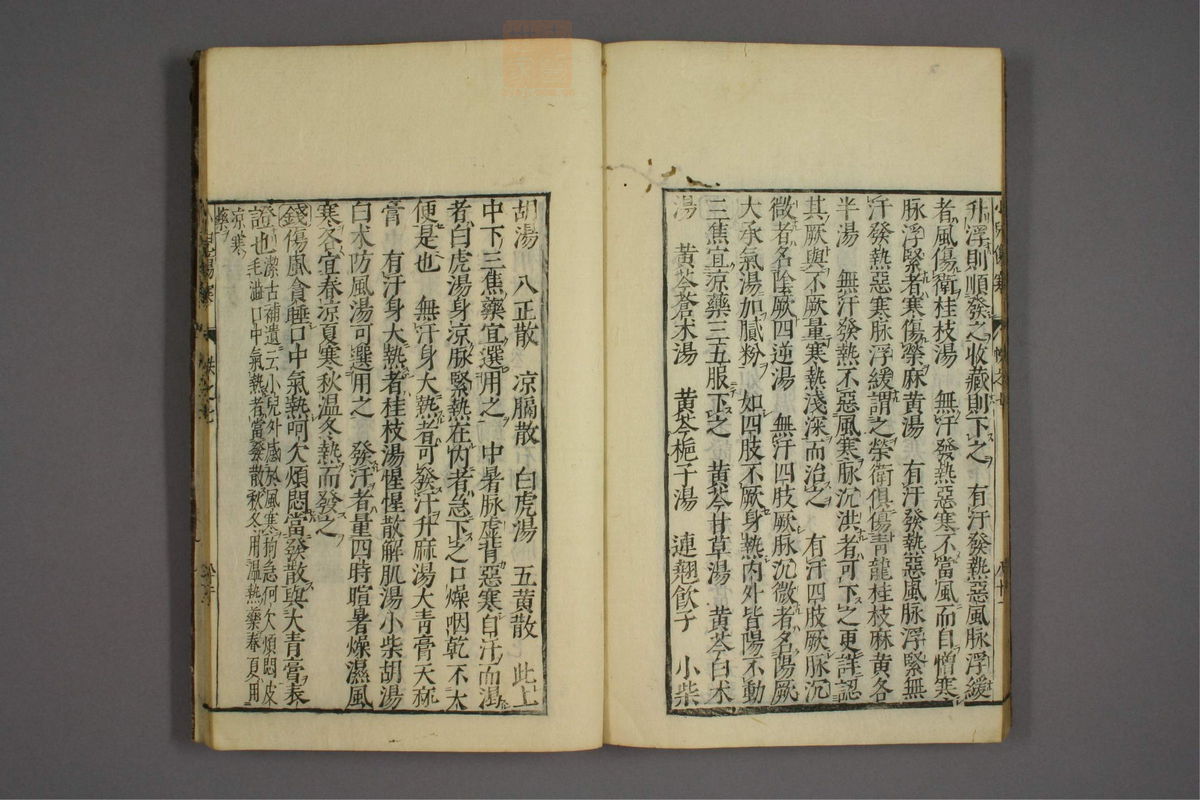 升浮則順發之收藏則下之　有汗發熱惡風脉浮緩
者風傷衛桂枝湯　無汗發熱惡寒不當風而自憎寒
脉浮緊者寒傷榮麻黄湯　有汗發熱惡風脉浮緊無
汗發熱惡寒脉浮緩謂之榮衛俱傷青龍桂枝麻黄各
半湯　無汗發熱不惡風寒脉沉洪者可下之更詳認
其厥與不厥量寒熱淺深而治之　有汗四肢厥脉沉
微者名陰厥四逆湯　無汗四肢厥脉沉微者名陽厥
大承氣湯加膩粉　如四肢不厥身熱内外皆陽不動
三焦宜凉藥三五服下之　黄芩甘草湯　黄芩白术
湯　黄芩蒼术湯　黄芩梔子湯　連翹飲子　小柴
胡湯　八正散　凉膈散　白虎湯　五黄散　此上
中下三焦藥宜選用之　中暑脉虚背惡寒自汗而渴
者白虎湯身凉脉緊熱在内者急下之口燥咽乾不大
便是也　無汗身大熱者可發汗升麻湯大青膏天秫
膏　有汗身大熱者桂枝湯惺惺散解肌湯小柴胡湯
白术防風湯可選用之　發汗者量四時暄暑燥濕風
寒各宜春凉夏寒秋温冬熱而發之
錢傷風貪睡口中氣熱呵欠煩悶當發散與大青膏表
證也潔古補遺云小兒外感於風寒拘急何欠煩悶皮
毛澁口中氣熱者當發散秋冬用温熱藥春夏用
凉寒
藥